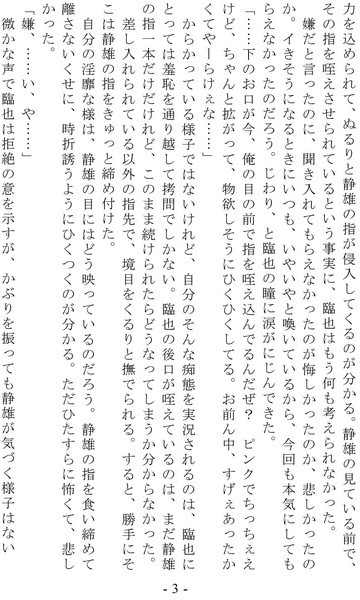 力を込められて、ぬるりと静雄の指が侵入してくるのが分かる。静雄の見ている前で、
その指を咥えさせられているという事実に、臨也はもう何も考えられなかった。
嫌だと言ったのに、聞き入れてもらえなかったのが悔しかったのか、悲しかったの
か。イきそうになるときにいつも、いやいやと喚いているから、今回も本気にしても
らえなかったのだろう。じわり、と臨也の瞳に涙がにじんできた。
「……下のお口が、今、俺の目の前で指を咥え込んでるんだぜ?　ピンクでちっちぇえ
けど、ちゃんと拡がって、物欲しそうにひくひくしてる。お前ん中、すげぇあったか
くてやーらけぇな……」
からかっている様子ではないけれど、自分のそんな痴態を実況されるのは、臨也に
とっては羞恥を通り越して拷問でしかない。臨也の後口が咥えているのは、まだ静雄
の指一本だけだけれど、このまま続けられたらどうなってしまうか分からなかった。
差し入れられている以外の指先で、境目をくるりと撫でられる。すると、勝手にそ
こは静雄の指をきゅっと締め付けた。
自分の淫靡な様は、静雄の目にはどう映っているのだろう。静雄の指を食い締めて
離さないくせに、時折誘うようにひくつくのが分かる。ただひたすらに怖くて、悲し
かった。
「嫌、……い、や……」
微かな声で臨也は拒絶の意を示すが、かぶりを振っても静雄が気づく様子はない
- 3 -